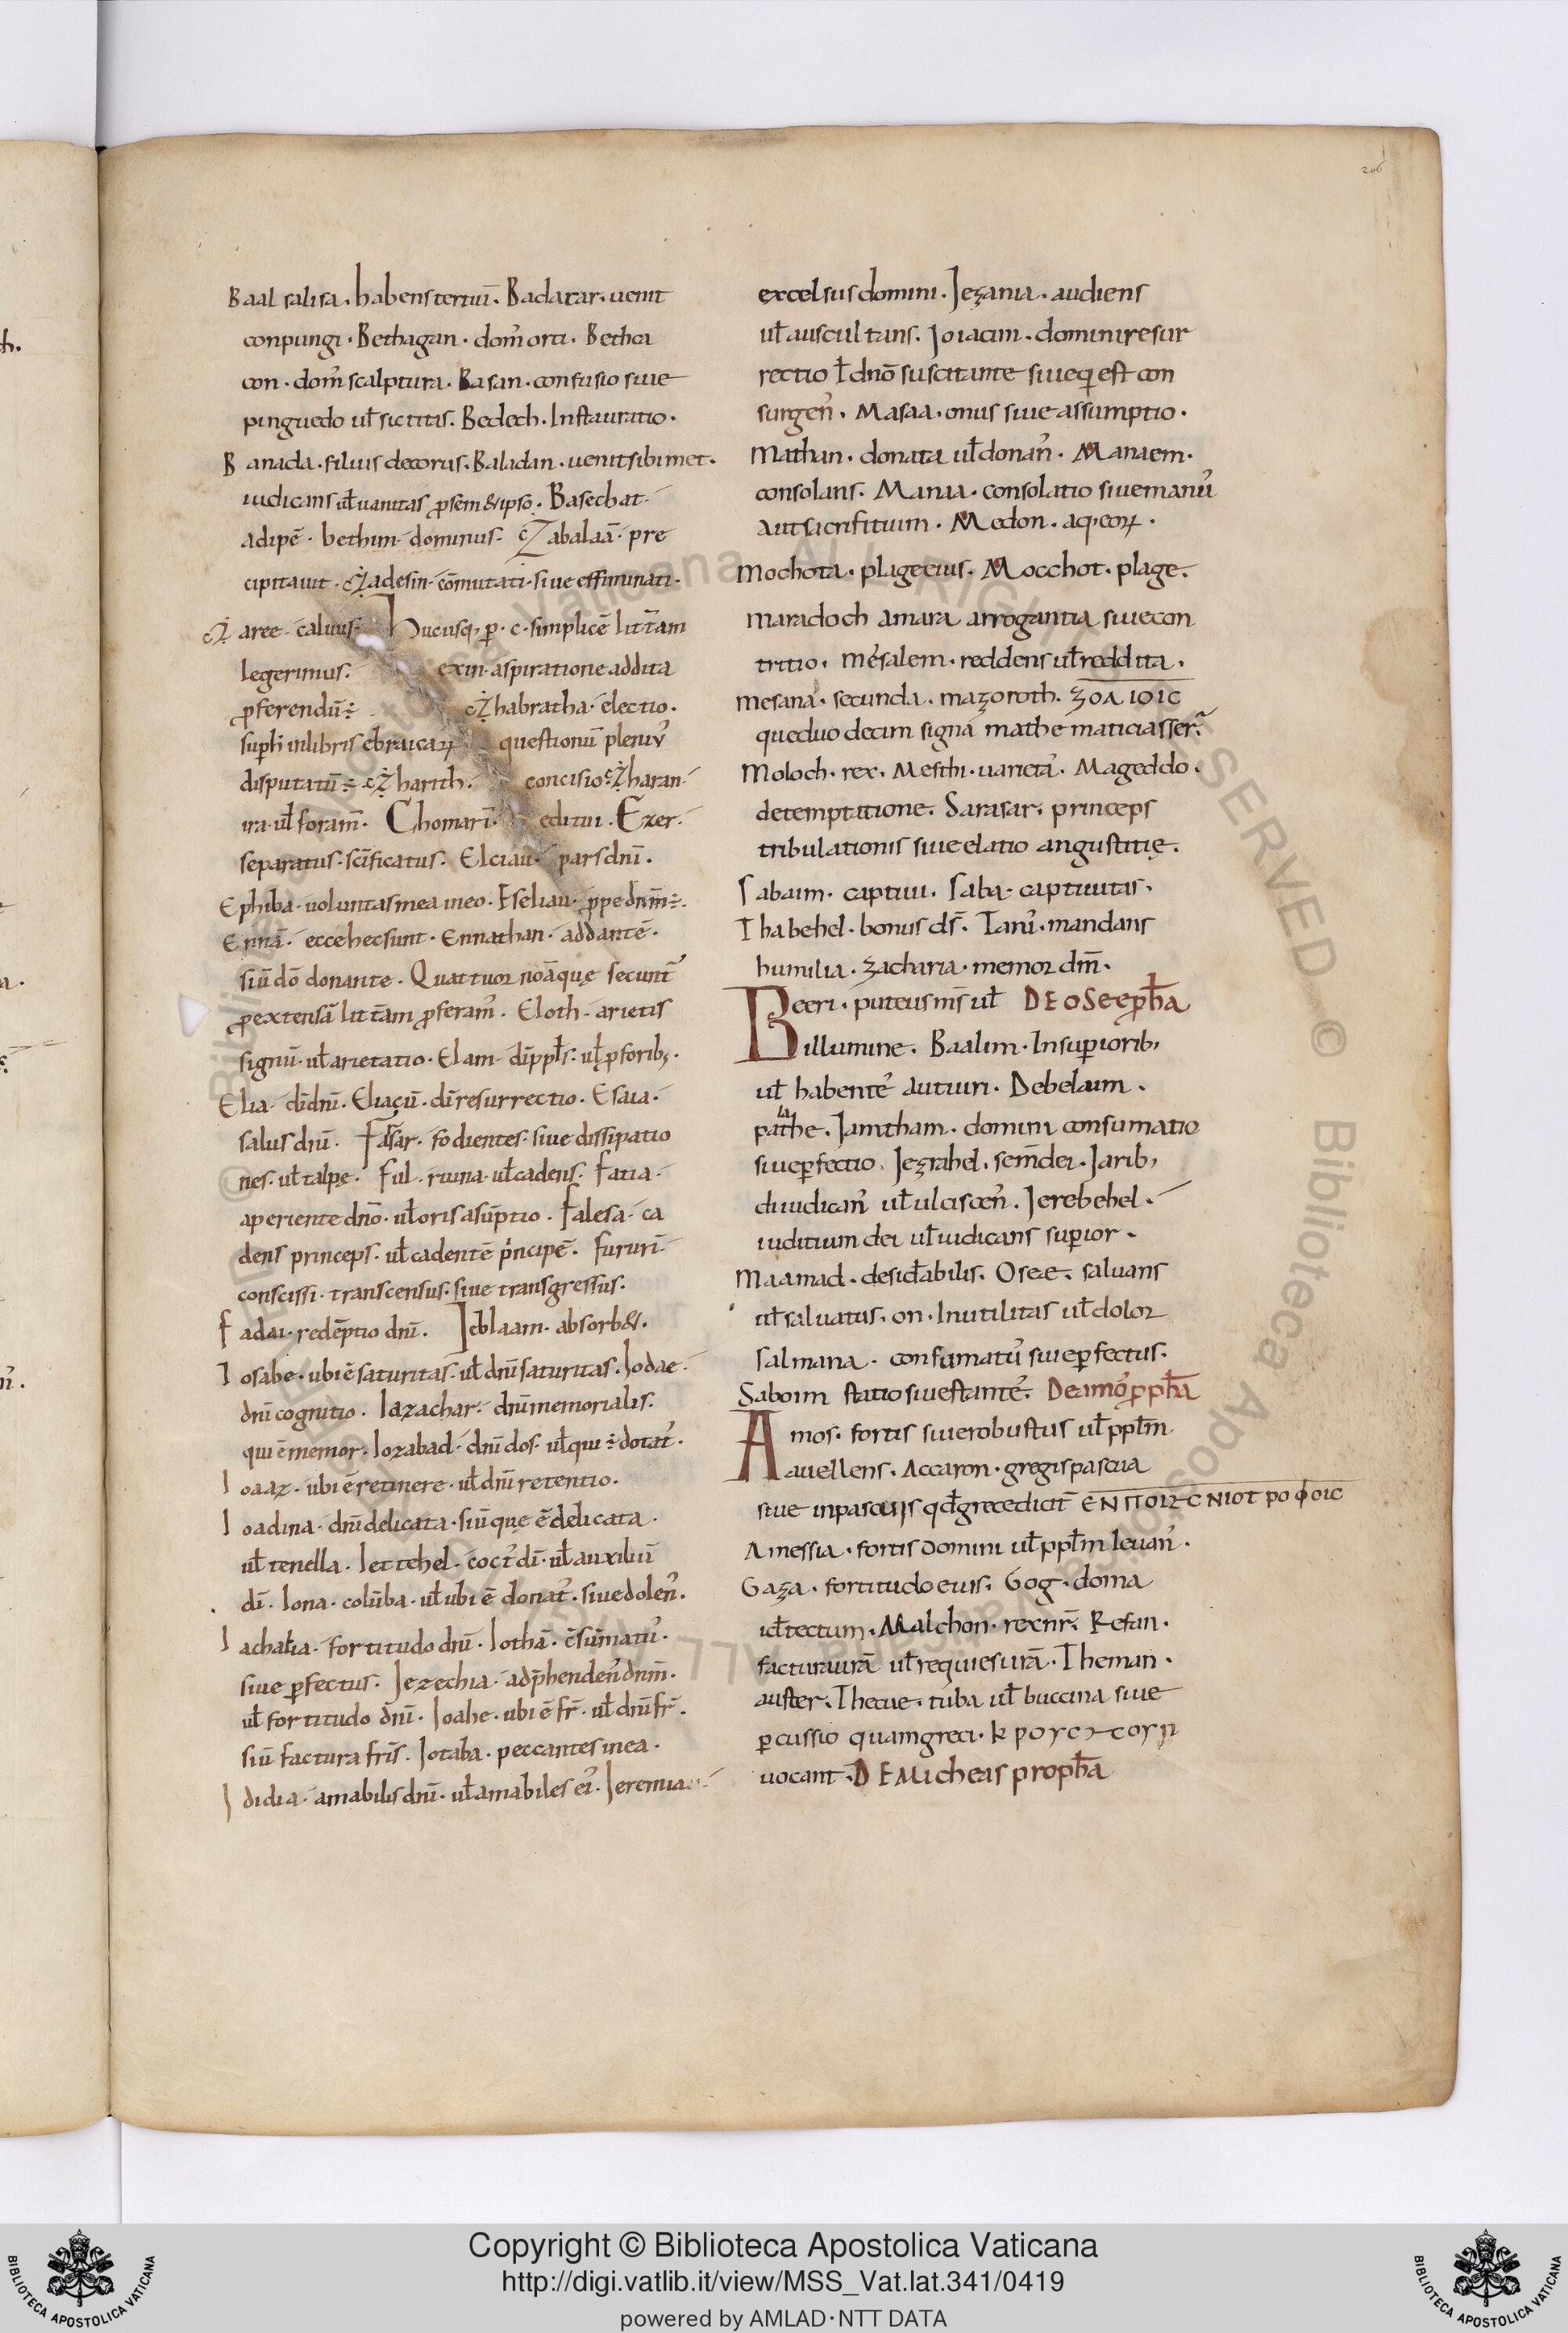 206
Baal salisa. habens tertiū. Badacar. uenit
conpungi. Bethagan. dom᷒ orti. Betha
con. dom᷒ scalptura. Basan. confusio siue
pinguedo uł siccitas. Bedech. Instauratio.
Banada. filius decorus. Baladan. uenit sibimet.
iudicans uł uanitas
adipē. bethim. dominus. Zabalaā. pre
cipitauit. Çadesin. cōmutati. siue effiminati.
Çaree. caluus. Hucusq; p̱. c. simplicē litt̄am
legerimus. exin. aspiratione addita
p̱ferendū÷ Çhabratha. electio.
sup̱ħ inlibris ebraicaꝝ questionū pleniᷣ
disputatū÷ Çharith. concisio. Çharan.
ira. uł foram̄. Chomarī. editui. Ezer.
separatus. sc̄ificatus. Elciau. pars dn̄i.
Ephiba. uoluntas mea in eo. Eseliau. p̱pe dn̄m÷.
Ennā. ecce hec sunt. Ennathan. addantē.
siū dō donante. Quattuor noāquę secunt᷒
p̱ extensā litt̄am p̱feram᷒. Eloth. arietis
signū. uł arietatio. Elam. dī ppłs. uł p̱ forib;.
Elia. dī dn̄i. Eliaçū. dī resurrectio. Esaia.
salus dn̄i. Fassar. fodientes. siue dissipatio
nes. uł talpę. Ful. ruina. uł cadens. Fatia.
aperiente dn̄o. uł oris asūptio. Falesa. ca
dens princeps. uł cadentē p͛ncipē. Fururī.
conscissi. transcensus. siue transgressus.
Fadai. redēptio dn̄i. Jeblaam. absorb&.
Iosabe. ubi ē saturitas. uł dn̄i saturitas. Iodae.
dn̄i cognitio. Iazachar. dn̄i memorialis.
qui ē memor. Iozabad. dn̄i dos. uł qui ÷ dotat᷒.
Ioaaz. ubi ē retinere. uł dn̄i retentio.
Ioadina. dn̄i delicata. siū quę ē delicata.
uł tenella. Iettehel. coct᷒ dī. uł auxiliū
dī. Iona. colūba. uł ubi ē donat᷒. siue dolen᷒.
Iachalia. fortitudo dn̄i. Iothā. c̄sūmatu᷒.
siue p̱fectus. Jezechia. adp̄henden᷒ dnm̄.
uł fortitudo dn̄i. Ioahe. ubi ē fr̄. uł dn̄i fr̄.
siū factura fr̄is. Jotaba. peccantes in ea.
Ididia. amabilis dn̄i. uł amabiles ei᷒. Jeremia
excelsus domini. Jeçania. audiens
uł auscultans. Joiacim. domini resur
rectio ł dn̄o suscitante siue q̱ est con
surgen᷒. Masaa. onus siue assumptio.
Mathan. donata uł donan᷒. Manaem.
consolans. Manaa. consolatio siue manu᷒
aut sacrifitium. Medon. aq, eoꝝ.
Mochota. plage eius. Mocchot. plage.
maradoch amara arrogantia siue con
tritio. mesalem. reddens uł reddita.
mesana. secunda. mazoroth. ζολιοις
que duodecim signa mathematici asser᷒
Moloch. rex. Mesthi. uarieta᷒. Mageddo.
de temptatione. Sarasar. princeps
tribulationis siue elatio angustitię.
Sabaim. captiui. Saba. captiuitas.
Thabehel. bonus ds̄. Tani᷒. mandans
humilia. zacharia. memor dnī.
Beeri. puteus ms̄ uł DE OSEE p̱ħa
illumine. Baalim. In superiorib;
uł habente᷒ autuiri. Debelaim.
palathe. Jamtham. domini consumatio
siue p̱fectio. Jezrahel. sem̄ dei. Jarib,
diiudican᷒ uł ulciscen᷒. Jerebehel.
iuditium dei uł iudicans superior.
Maamad. desiđabilis. Osee. saluans
uł saluatus. on. Inutilitas uł dolor
salmana. consumatu᷒ siue p̱fectus.
Saboim statio siue stante᷒. De amo᷒ p̱pħa
Amos. fortis siue robustus uł ppłm
auellens. Accaron. gregis pascua
siue in pascuis qđ grece dicit̄ ΕΝ ΠΟΙΖC ΝΙΟΤ ΡΟΦΟΙC
Amessia. fortis domini uł ppłm leuan᷒.
Gaza. fortitudo eius. Gog. doma
iđ tectum. Malchon. rex nr̄. Refan.
facturaurā uł requiesurā. Theman.
auster. Thecue. tuba uł buccina siue
p̱cussio quam greci.
uocant. DE Micheas propħa
Copyright © Biblioteca Apostolica Vaticana
http://digi.vatlib.it/view/MSS_Vat.lat.341/0419
powered by AMLAD·NTT DATA
BIBLIOTECA APOSTOLICA VATICANA
BIBLIOTECA APOSTOLICA VATICANA